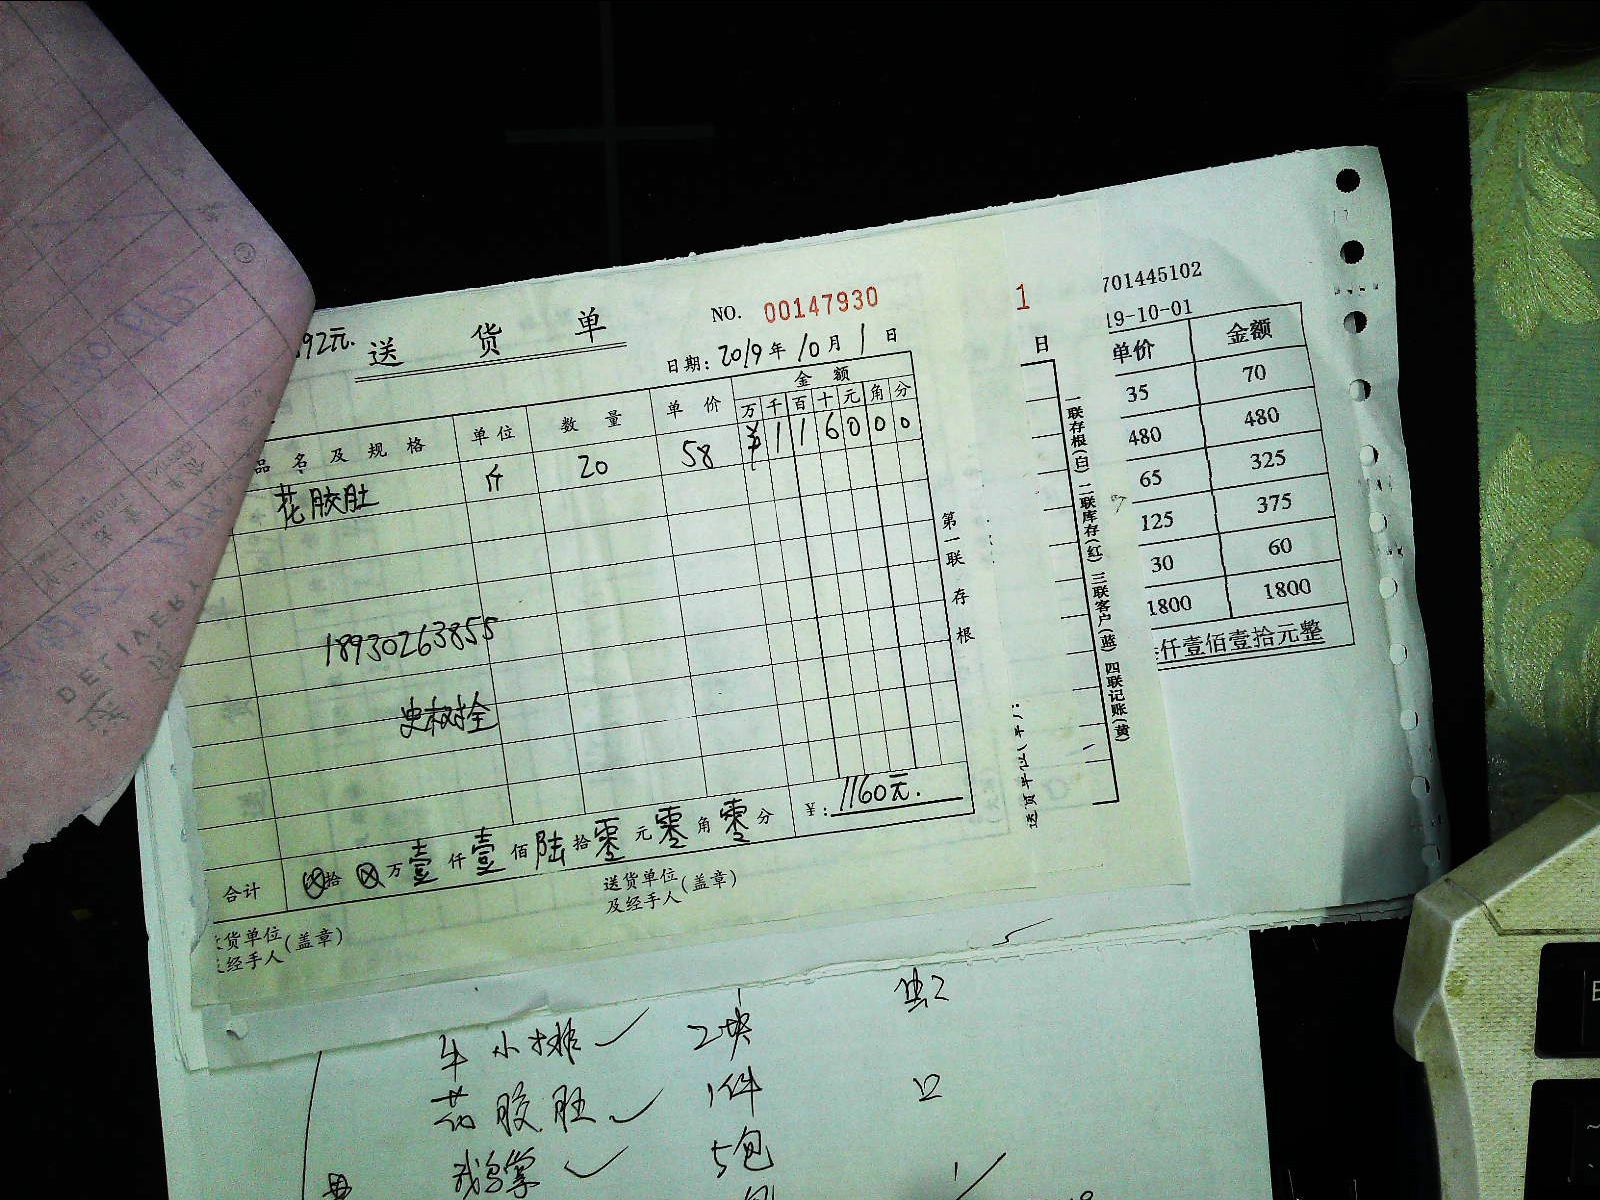 92元.
送货单
NO. 00147930
日期: 2019年10月1日
品名及规格 单位 数量 单价 金额
万千百十元角分
花胶肚 斤 20 58 ¥116000
18930263855
合计 ⊗拾⊗万壹仟壹佰陆拾零元零角零分 ¥: 1160元.
货单位
经手人(盖章)
送货单位
及经手人(盖章)
第一联存根
1
日
一联存根(白) 二联库存(红) 三联客户(蓝) 四联记账(黄)
701445102
19-10-01
单价 金额
35 70
480 480
65 325
125 375
30 60
1800 1800
仟壹佰壹拾元整
DELIVERY
牛小排 2块
花胶肚 1件
5包